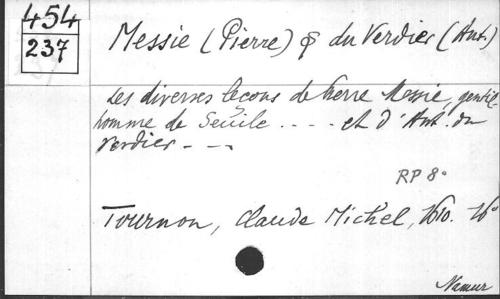 454
237
Messie (Pierre) & du Verdier (Ant.)
Les diverses leçons de Pierre Messie, gentil-
homme de Seuile .... et d'Ant. du
Verdier - - -
RP 8°
Tournon, Claude Michel, 1610. 16°
Namur